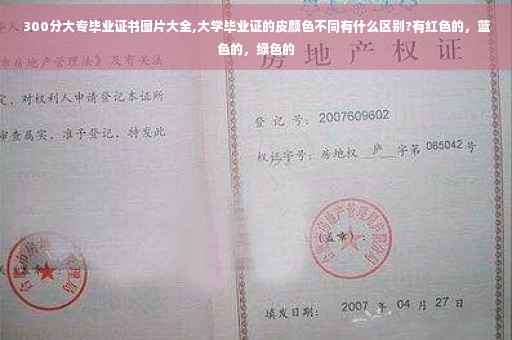 300分大专毕业证书图片大全,大学毕业证的皮颜色不同有什么区别?有红色的，蓝
色的，绿色的
房地产管理法》及有关法
定，对权利人申请登记本证所
审查属实，准予登记，特发此
房地产权
登 记 号: 2007609602
权证字号: 房地权 庐 字第 065042 号
(盖章):
填发日期: 2007 年 04 月 27 日